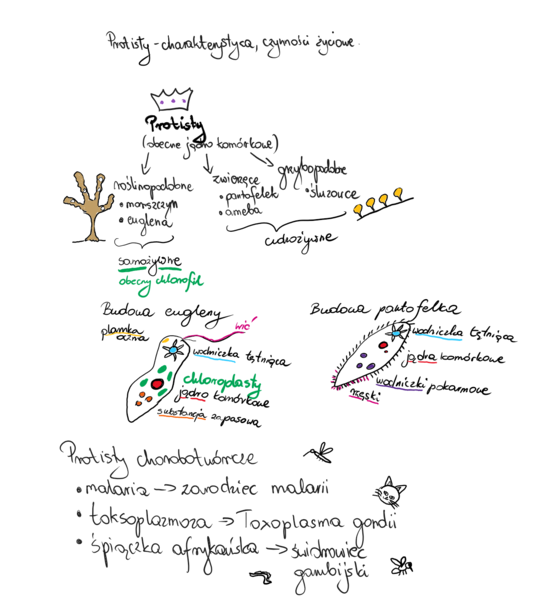 Protisty - charakterystyka, czynności życiowe.
Protisty
(obecne jądro komórkowe)
roślinopodobne
• morszczyn
• euglena
zwierzęce
• pantofelek
• ameba
grzybopodobne
• śluzowce
samożywne
obecny chlorofil
cudzożywne
Budowa eugleny
plamka
oczna
wić
wodniczka tętniąca
chloroplasty
jądro komórkowe
substancja zapasowa
Budowa pantofelka
wodniczka tętniąca
jądra komórkowe
wodniczki pokarmowe
rzęski
Protisty chorobotwórcze
• malaria -> zarodziec malarii
• toksoplazmoza -> Toxoplasma gondii
• śpiączka afrykańska -> świdrowiec
gambijski